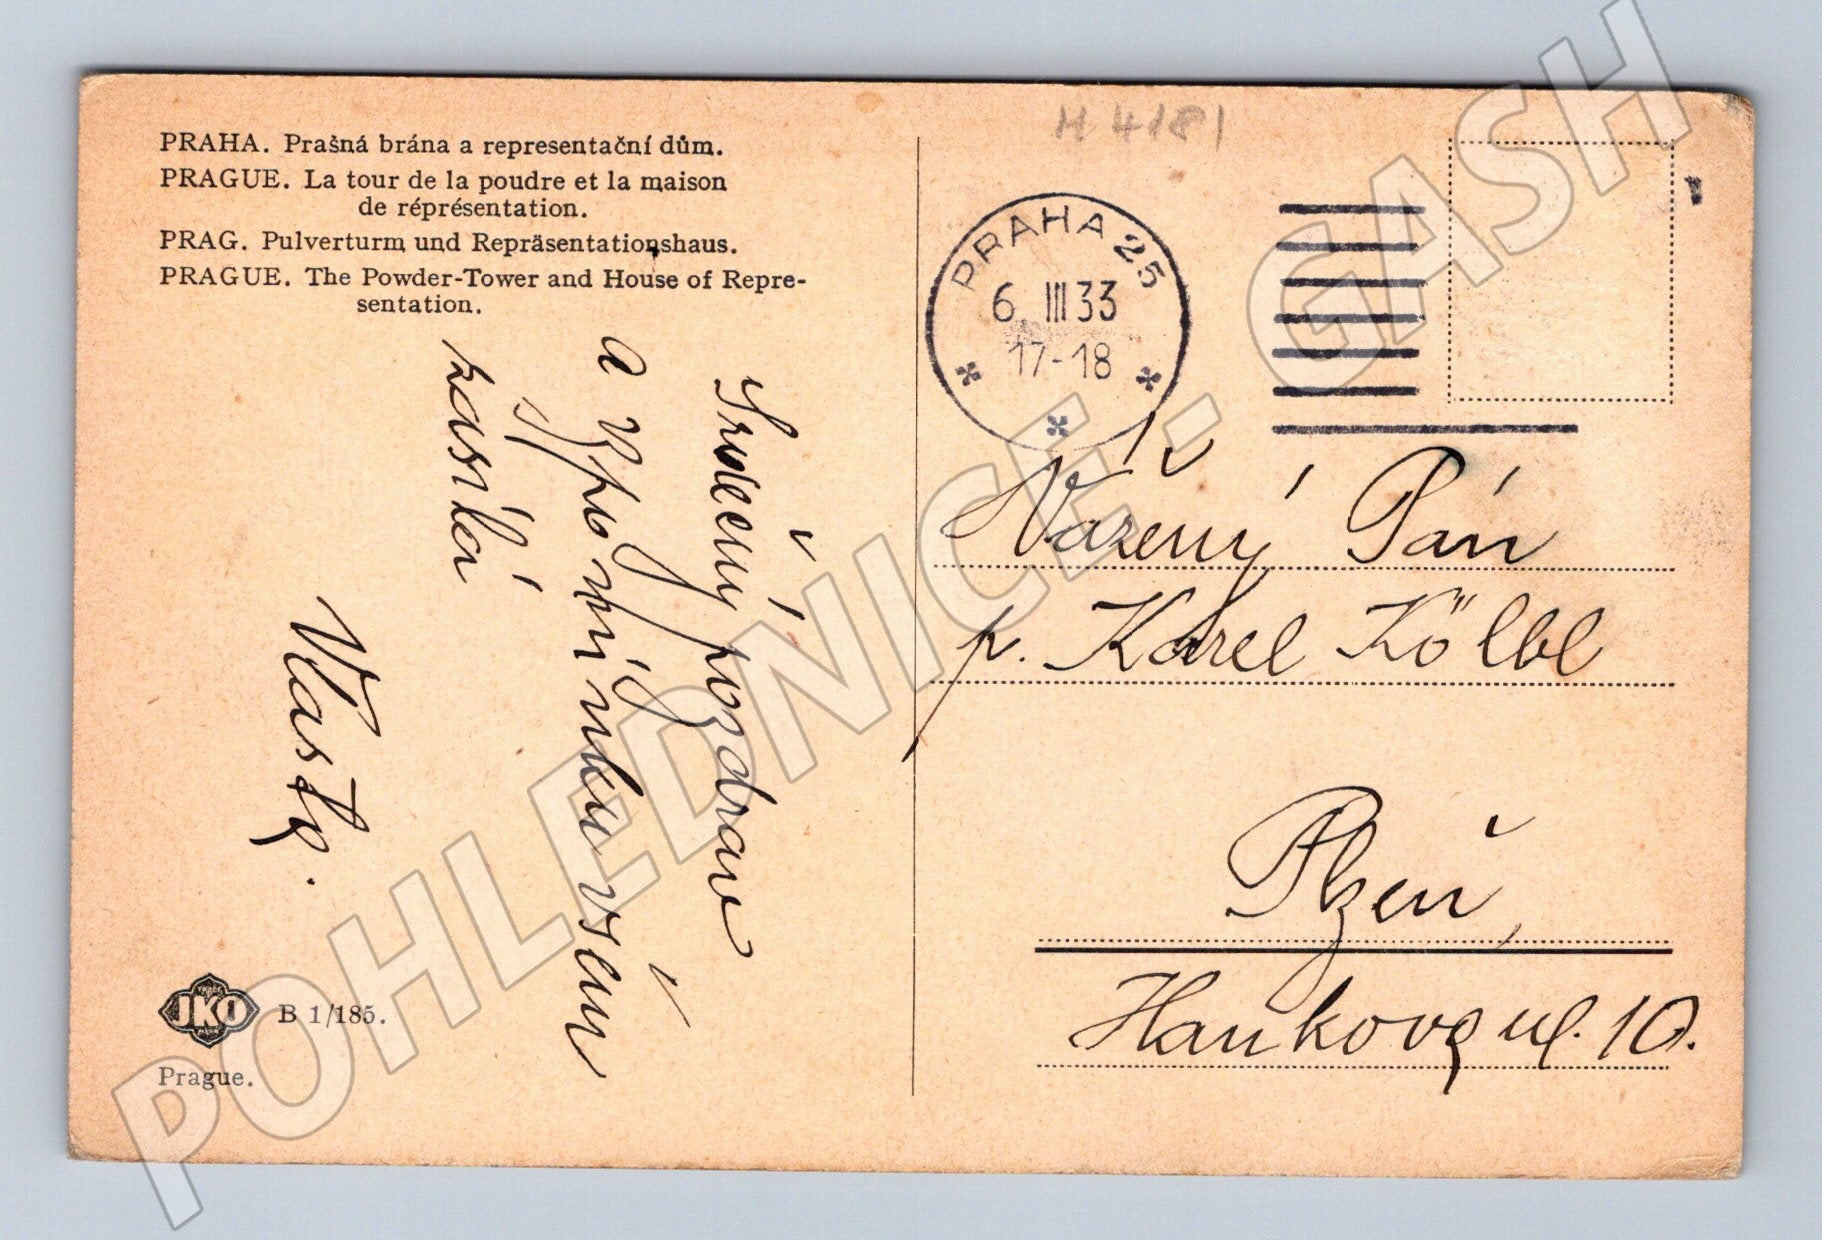 PRAHA. Prašná brána a representační dům.
PRAGUE. La tour de la poudre et la maison
de réprésentation.
PRAG. Pulverturm und Repräsentationshaus.
PRAGUE. The Powder-Tower and House of Repre-
sentation.
Srdečný pozdrav
a vzpomínku všem
zasílá
Vlasta.
JKO
B 1/185.
Prague.
H 4181
PRAHA 25
6. III 33
17-18
Vážený Pán
p. Karel Kölbl
Plzeň,
Hankova ul. 10.
POHLEDNICE - GASH